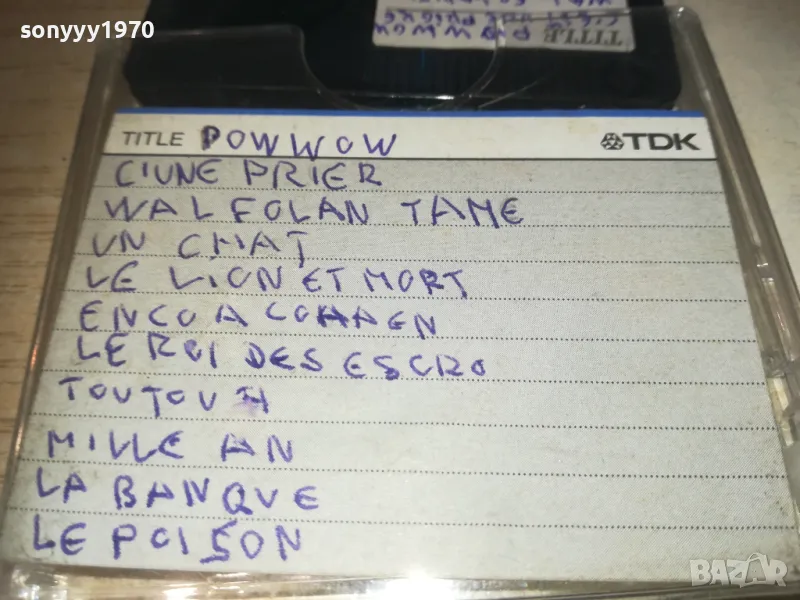 sonyyy1970
TITLE POW WOW
TITLE POWWOW
TDK
CIUNE PRIER
WAL FOLAN TAME
UN CHAT
LE LION ET MORT
ENCO A COHHEN
LE ROI DES ESCRO
TOUTOU H
MILLE AN
LA BANQUE
LE POISON
BAZAR